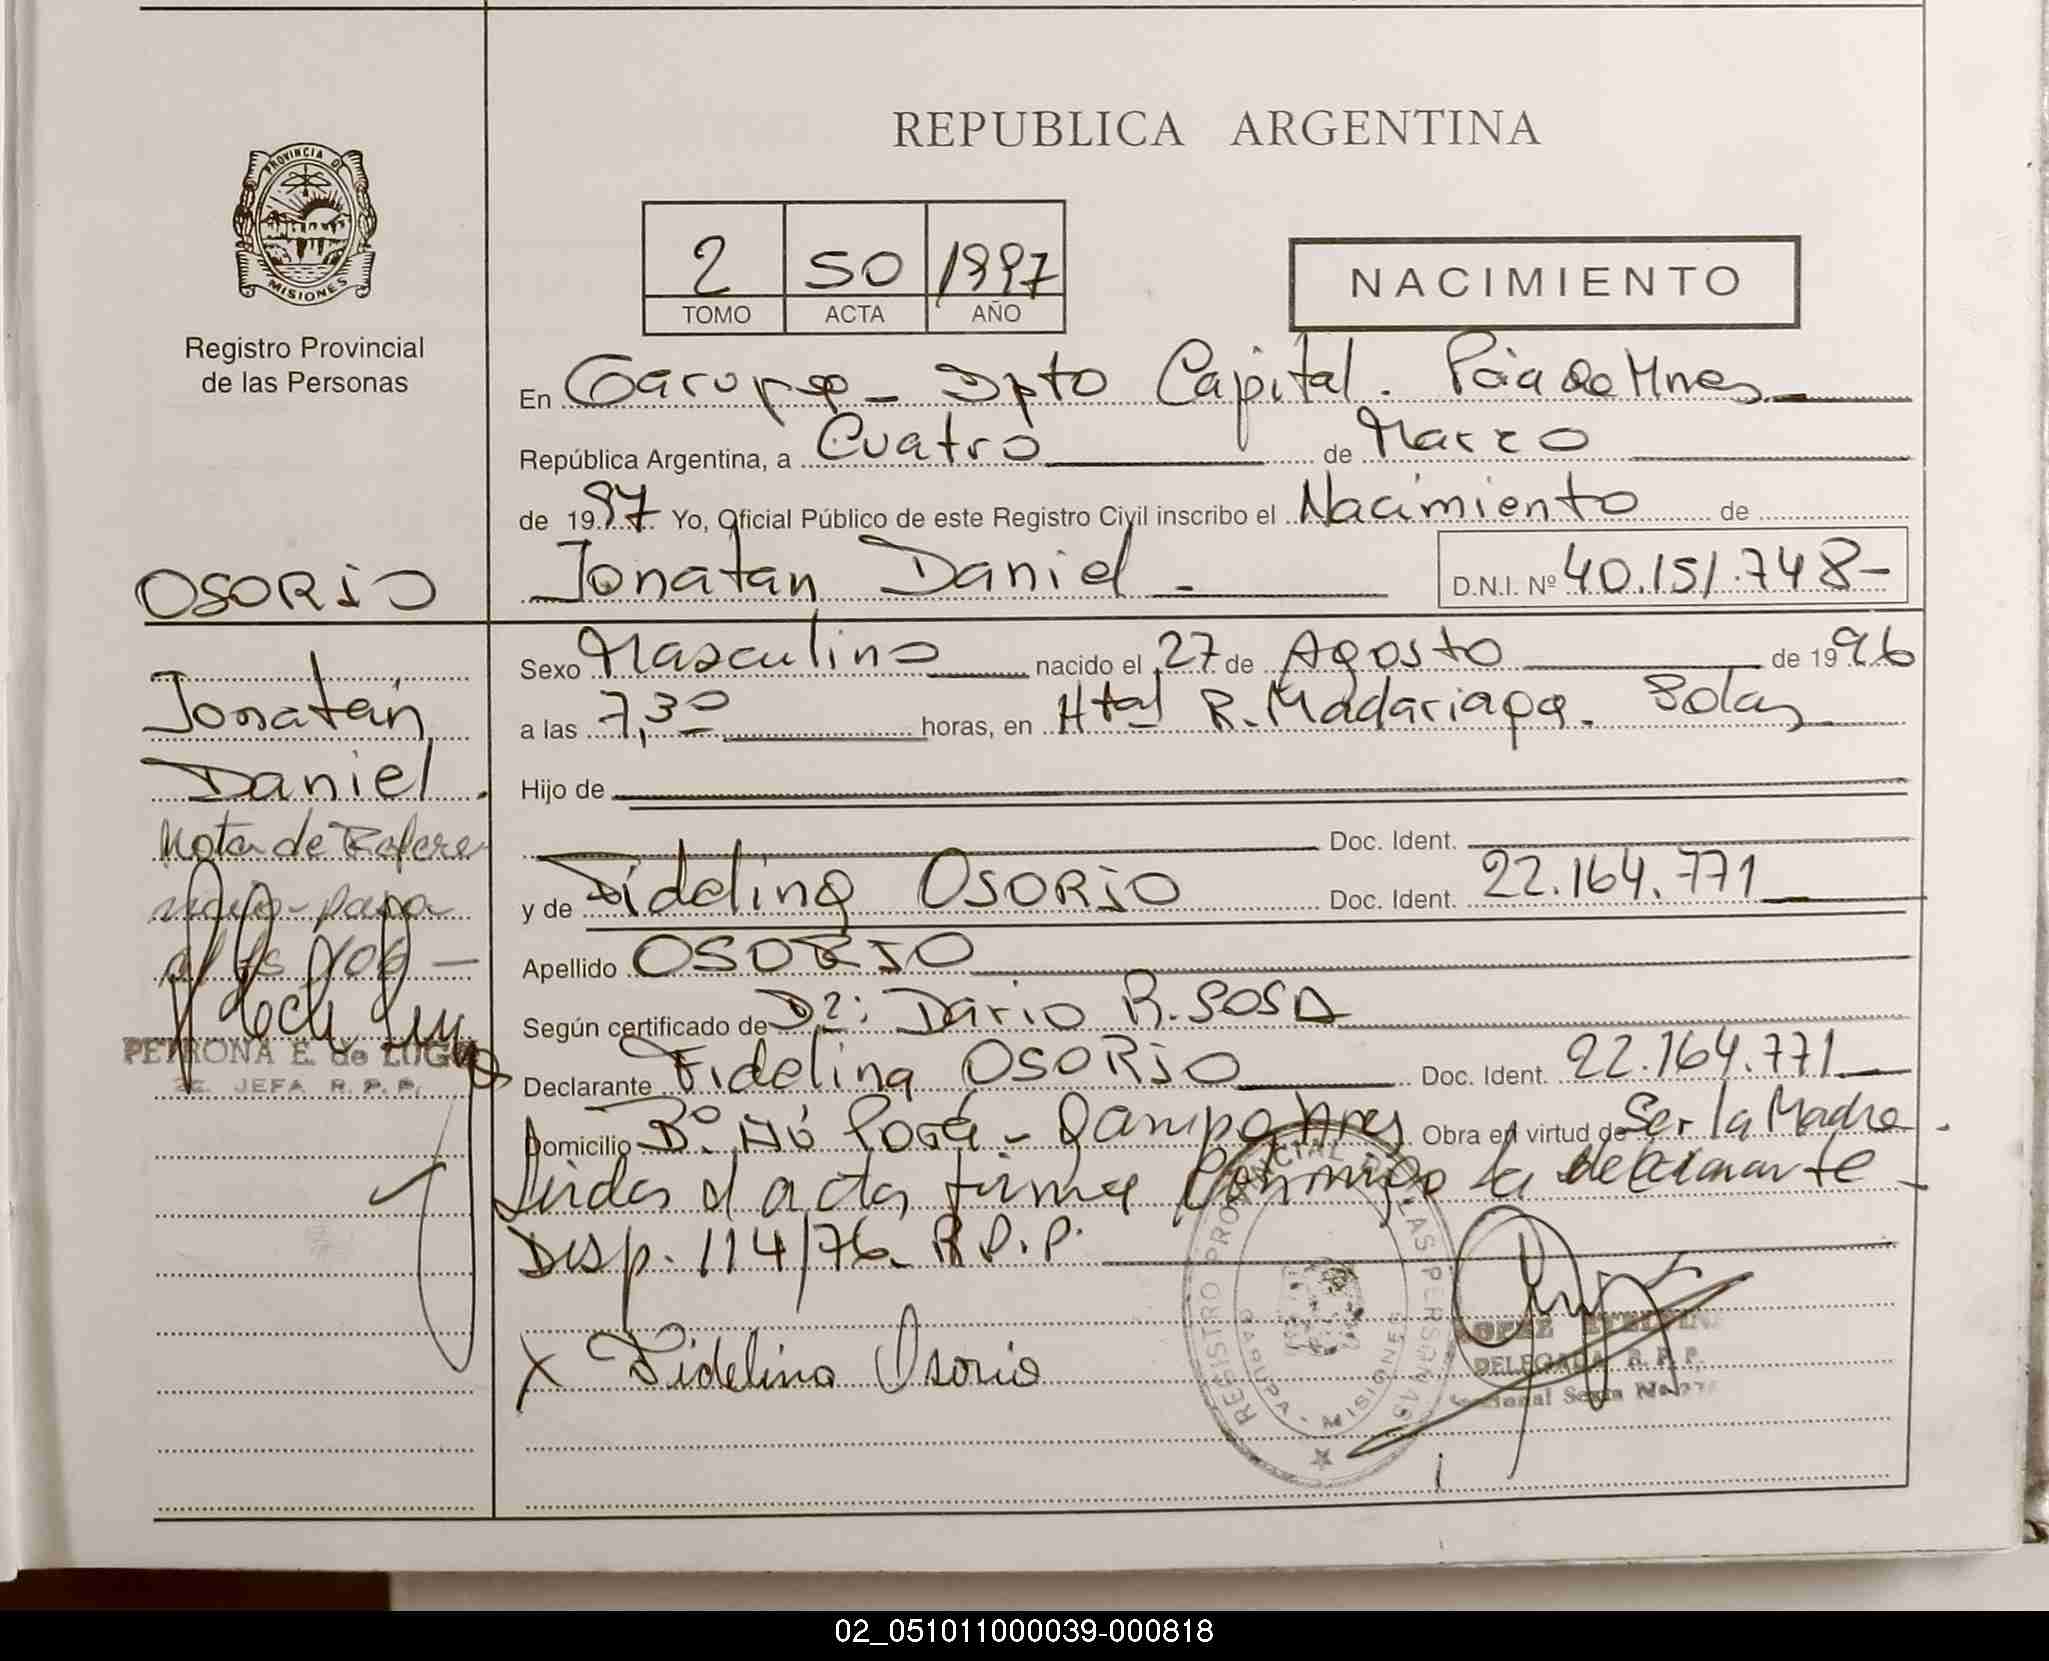 REPUBLICA ARGENTINA
PROVINCIA DE
MISIONES
Registro Provincial
de las Personas
2 50 1997
TOMO ACTA AÑO
NACIMIENTO
En Garupa - Dpto Capital. Pcia de Mnes
República Argentina, a Cuatro de Marzo
de 1997 Yo, Oficial Público de este Registro Civil inscribo el Nacimiento de
Jonatan Daniel - D.N.I. Nº 40.151.748-
OSORIO
Jonatan
Daniel.
Nota de Refere
para
PETRONA E. de LUGO
JEFA R.P.P.
Sexo Masculino nacido el 27 de Agosto de 1996
a las 7,30 horas, en Htal R. Madariaga.
Hijo de
Doc. Ident.
y de Fidelina OSORIO Doc. Ident. 22.164.771
Apellido OSORIO
Según certificado de Dr: Dario R. SOSA
Declarante Fidelina OSORIO Doc. Ident. 22.164.771
Domicilio Bº Ñú Porá - Obra en virtud de Ser la Madre.
el acta firma conmigo la declarante
Disp. 114/76 R.P.P.
X Fidelina Osorio
REGISTRO PROVINCIAL DE LAS PERSONAS
GARUPA - MISIONES
DELEGADA R.P.P.
02_051011000039-000818